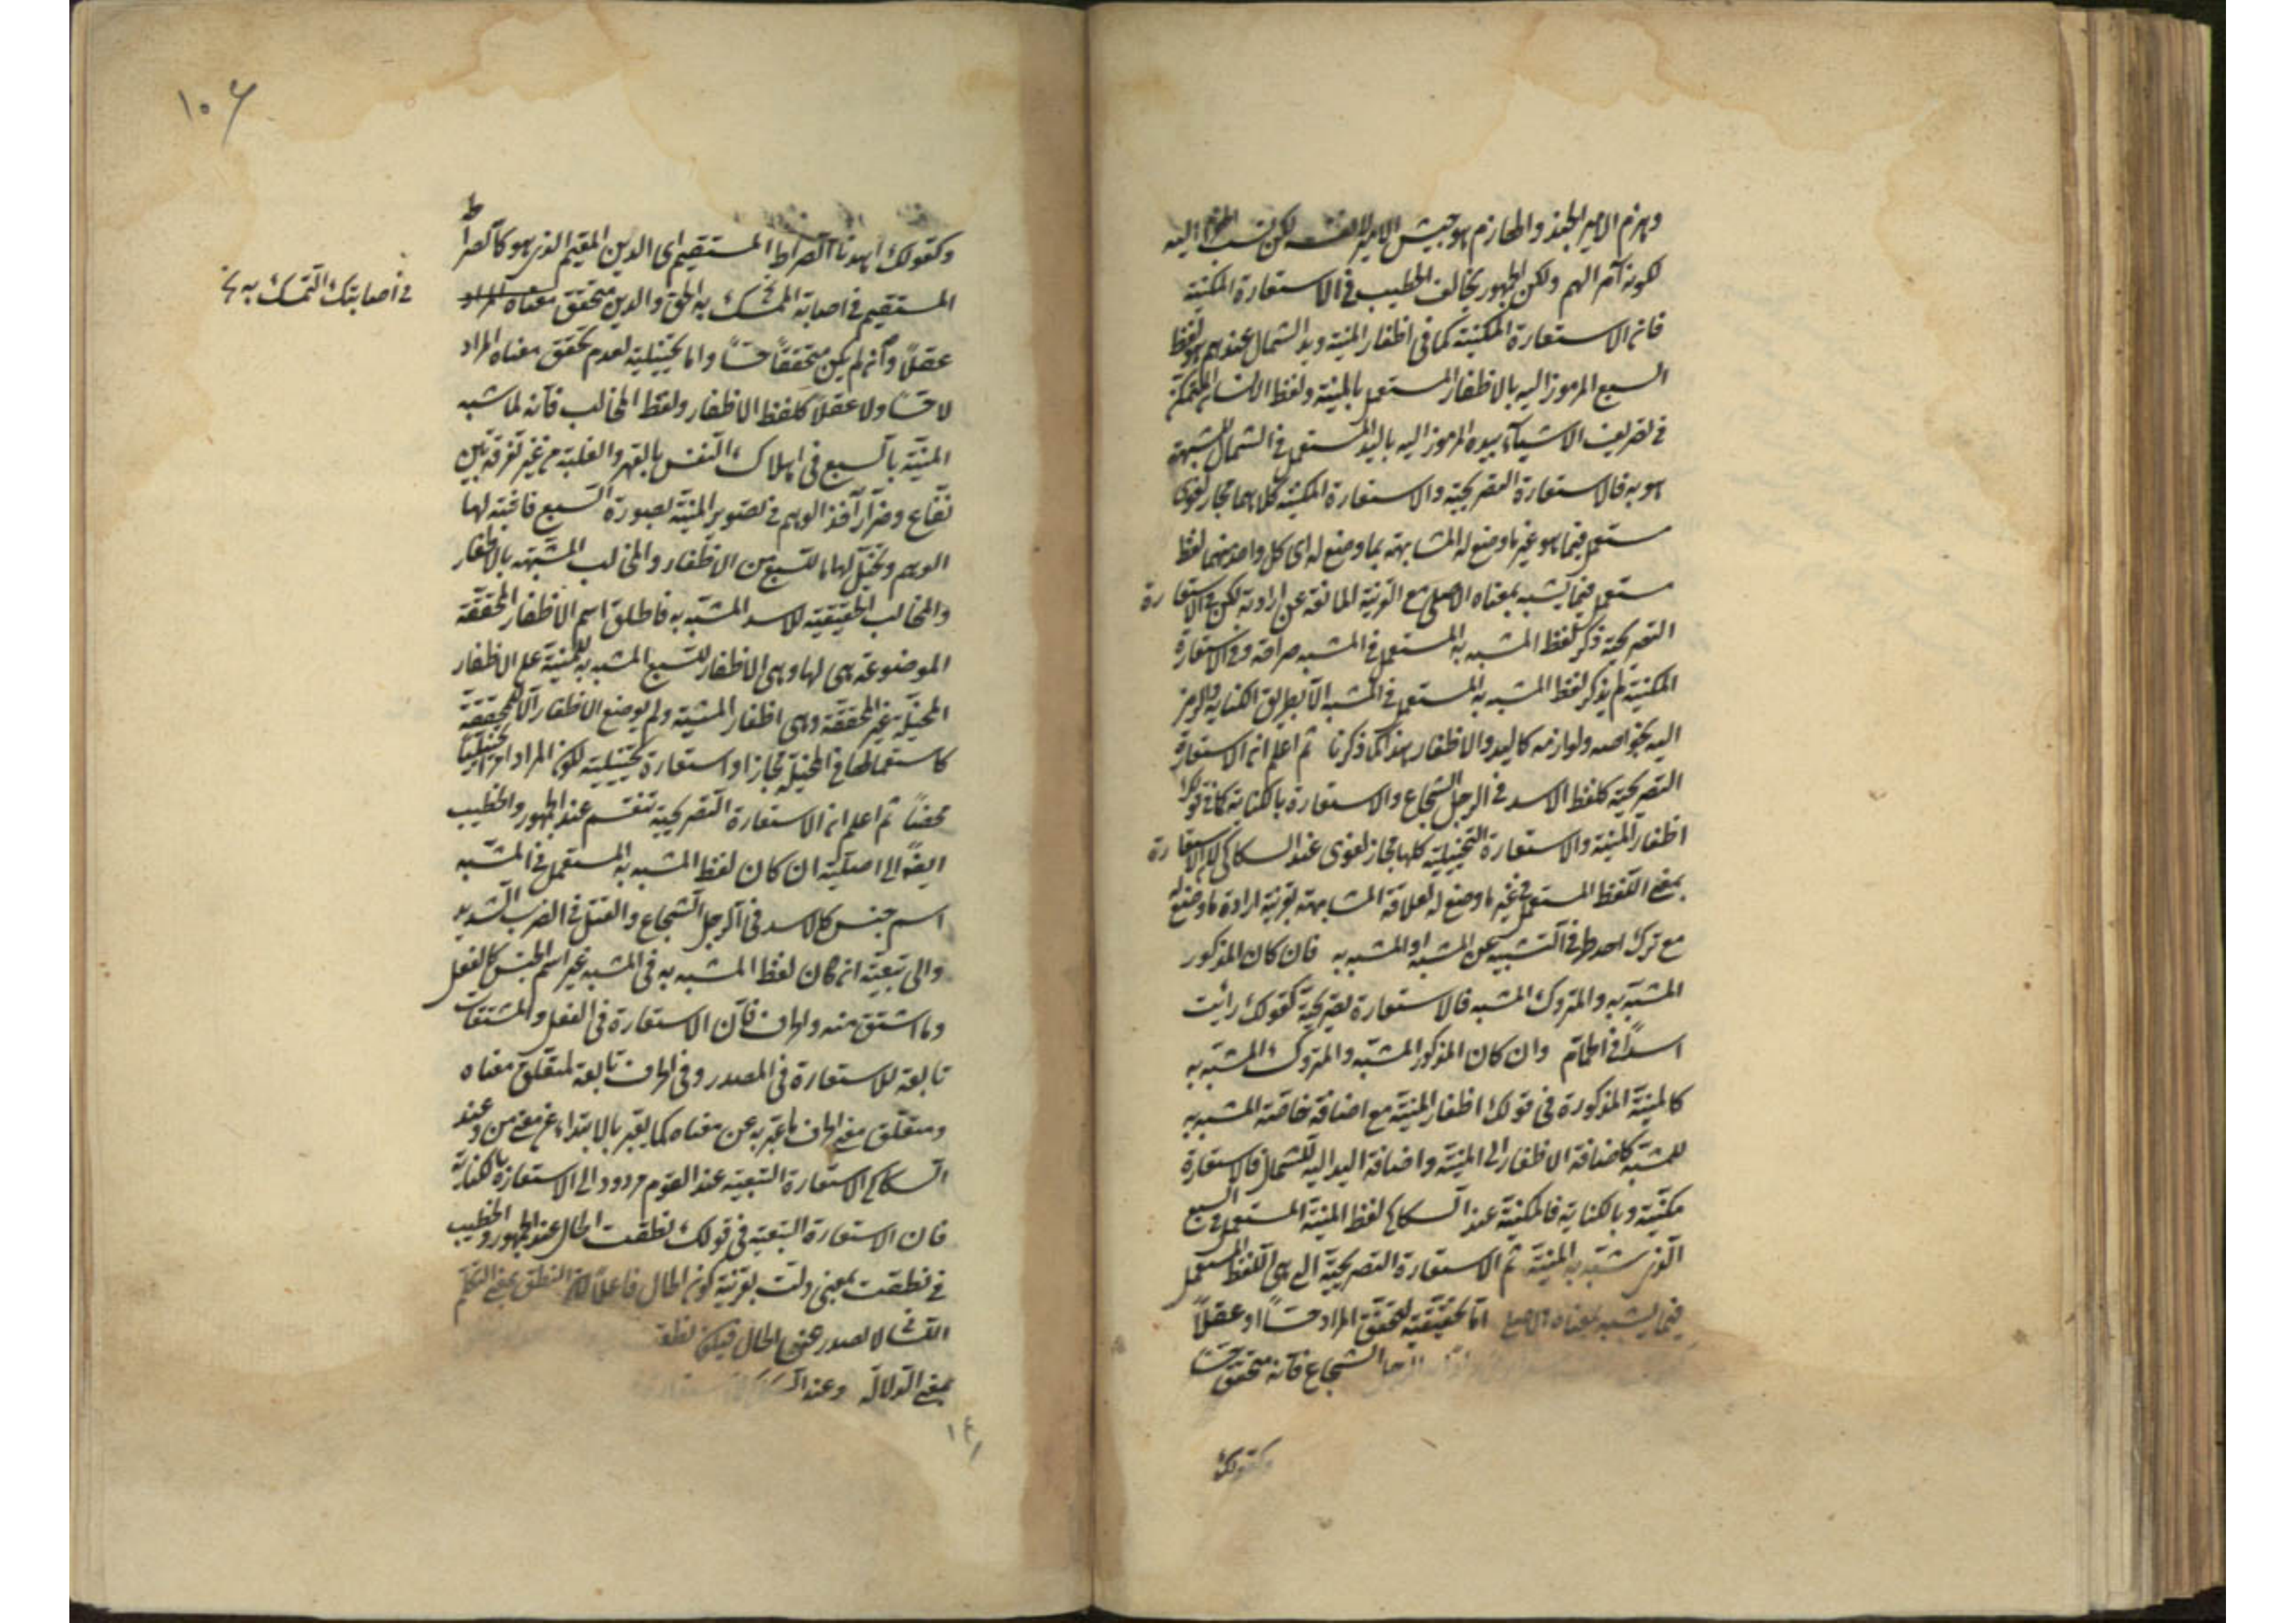 وهزم الامير الجند والهازم هو جيش الامير لا نفسه لكن نسب الهزم اليه
لكونه آمرا لهم ولكن الجمهور يخالف الخطيب في الاستعارة المكنية
فان الاستعارة المكنية كما في اظفار المنية ويد الشمال عندهم هو لفظ
السبع المرموز اليه بالاظفار المستعمل بالمنية ولفظ الانسان المتمكن
في تصريف الاشياء بيده المرموز اليه باليد المستعمل في الشمال المشبهة
هو به فالاستعارة التصريحية والاستعارة المكنية كلاهما مجاز لغوى
مستعمل فيما هو غير ما وضع له المشابهته بما وضع له اى كل واحد منهما لفظ
مستعمل فيما يشبه بمعناه الاصلى مع القرنية المانعة عن ارادته لكن في الاستعارة
التصريحية ذكر لفظ المشبه به المستعمل في المشبه صراحة وفى الاستعارة
المكنية لم يذكر لفظ المشبه به المستعمل في المشبه الا بطريق الكناية والرمز
اليه بخواصه ولوازمه كاليد والاظفار هذا كما ذكرنا ثم اعلم ان الاستعارة
التصريحية كلفظ الاسد في الرجل الشجاع والاستعارة بالكناية كما في قولك
اظفار المنية والاستعارة التخييلية كلها مجاز لغوى عند السكاكى لان الاستعارة
بمعنى اللفظ المستعمل في غير ما وضع له لعلاقة المشابهة بقرنية ارادة ما وضع له
مع ترك احد طرفى التشبيه عن المشبه او المشبه به فان كان المذكور
المشبه به والمتروك المشبه فالاستعارة تصريحية كقولك رايت
اسدا في الحمام وان كان المذكور المشبه والمتروك المشبه به
كالمنية المذكورة في قولك اظفار المنية مع اضافة خاصة المشبه به
للمشبه كاضافة الاظفار الى المنية واضافة اليد اليه للشمال فالاستعارة
مكنية وبالكناية فالمكنية عند السكاكى لفظ المنية المستعمل في السبع
الذى شبه به المنية ثم الاستعارة التصريحية التى هى اللفظ المستعمل
فيما يشبه بمعناه الاصلى اما تحقيقية لتحقق المراد حسا او عقلا
الرجل الشجاع فانه متحقق حسا
وكقولك
١٠٦
وكقولك اهدنا الصراط المستقيم اى الدين القيم الذى هو كالصراط
المستقيم في اصابة المتمسك به الحق والدين متحقق معناه المراد
في اصابتك التمسك به نخ
عقلا وان لم يكن متحققا حسا واما تخييلية لعدم تحقق معناه المراد
لا حسا ولا عقلا كلفظ الاظفار ولفظ المخالب فانه لما شبه
المنية بالسبع في اهلاك النفس بالقهر والغلبة من غير تفرقة بين
نفاع وضرار اخذ الوهم في تصوير المنية بصورة السبع فاثبته لها
الوهم وتخيل لها ما للسبع من الاظفار والمخالب المشبهه بالاظفار
والمخالب الحقيقية للاسد المشبه به فاطلق اسم الاظفار المحققة
الموضوعة هى لها وهى الاظفار للسبع المشبه به للمنية على الاظفار
المخيلة غير المحققة وهى اظفار المنية ولم يوضع الاظفار الا للمحققة
كاستعمالها في المخيلة مجازا واستعارة تخييلية لكون المراد امرا تخييليا
محضا ثم اعلم ان الاستعارة التصريحية تنقسم عند الجمهور والخطيب
ايضا الى اصلية ان كان لفظ المشبه به المستعمل في المشبه
اسم جنس كالاسد في الرجل الشجاع والقتل في الضرب الشديد
والى تبعية ان كان لفظ المشبه به في المشبه غير اسم الجنس كالفعل
وما اشتق منه والحرف فان الاستعارة في الفعل والمشتقات
تابعة للاستعارة في المصدر وفى الحرف تابعة لمتعلق معناه
ومتعلق معنى الحرف ما عبر به عن معناه كما يعبر بالابتداء عن معنى من وعند
السكاكى الاستعارة التبعية عند القوم مردود الى الاستعارة بالكناية
فان الاستعارة التبعية في قولك نطقت الحال عند الجمهور والخطيب
في نطقت بمعنى دلت بقرنية كون الحال فاعلا لان النطق بمعنى التكلم
اللسانى لا يصدر عن الحال فيكون نطقت
بمعنى الدلالة وعند السكاكى استعارة